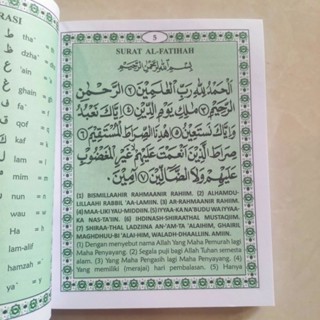 RASI
ط tha'
ظ dzha'
ع 'ain
غ ghain
ف fa'
ق qof
ك kaf
ل lam
م mim
ن nun
و wau
Ha
lam-alif
hamzah
ya'
5
SURAT AL-FATIHAH
بِسْمِ اللهِ الرَّحْمٰنِ الرَّحِيْمِ
اَلْحَمْدُ لِلّٰهِ رَبِّ الْعَالَمِيْنَ ٢ الرَّحْمٰنِ
الرَّحِيْمِ ٣ مٰلِكِ يَوْمِ الدِّيْنِ ٤ اِيَّاكَ نَعْبُدُ
وَاِيَّاكَ نَسْتَعِيْنُ ٥ اِهْدِنَا الصِّرَاطَ الْمُسْتَقِيْمَ ٦
صِرَاطَ الَّذِيْنَ اَنْعَمْتَ عَلَيْهِمْ غَيْرِ الْمَغْضُوْبِ
عَلَيْهِمْ وَلَا الضَّآلِّيْنَ ٧ اٰمِيْنَ
(1) BISMILLAAHIR RAHMAANIR RAHIIM. (2) ALHAMDU-
LILLAAHI RABBIL 'AA-LAMIIN. (3) AR-RAHMAANIR RAHIIM.
(4) MAA-LIKI YAU-MIDDIIN. (5) IYYAA-KA NA'BUDU WA IYYAA-
KA NAS-TA'IIN. (6) IHDINASH-SHIRAATHAL MUSTAQIIM.
(7) SHIRAA-THAL LADZIINA AN-'AM-TA 'ALAIHIM, GHAIRIL
MAGHDHUU-BI 'ALAI-HIM, WALADH-DHAALLIIN. AMIIN.
(1) Dengan menyebut nama Allah Yang Maha Pemurah lagi
Maha Penyayang. (2) Segala puji bagi Allah Tuhan semesta
alam. (3) Yang Maha Pengasih lagi Maha Penyayang.
(4) Yang memiliki (merajai) hari pembalasan. (5) Hanya